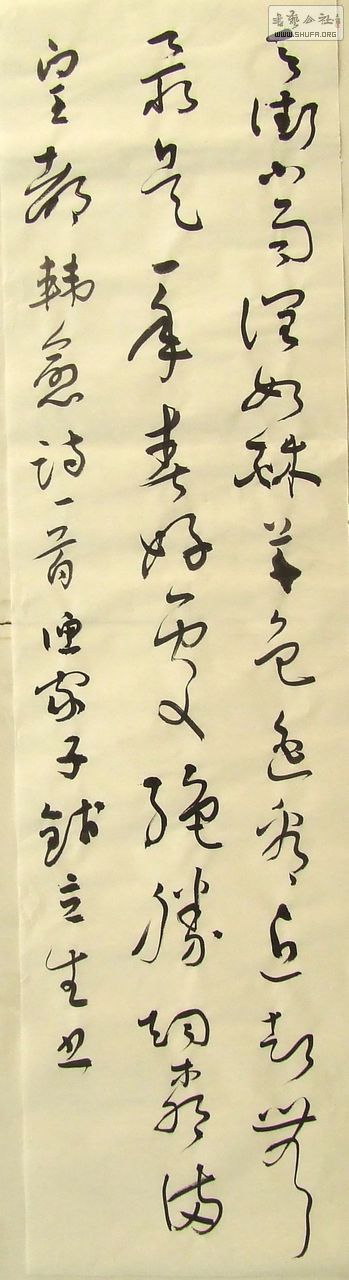 天街小雨潤如酥草色遙看近却無
最是一年春好處絕勝烟柳滿
皇都韓愈詩一首家子立生书
书艺公社
WWW.SHUFA.ORG